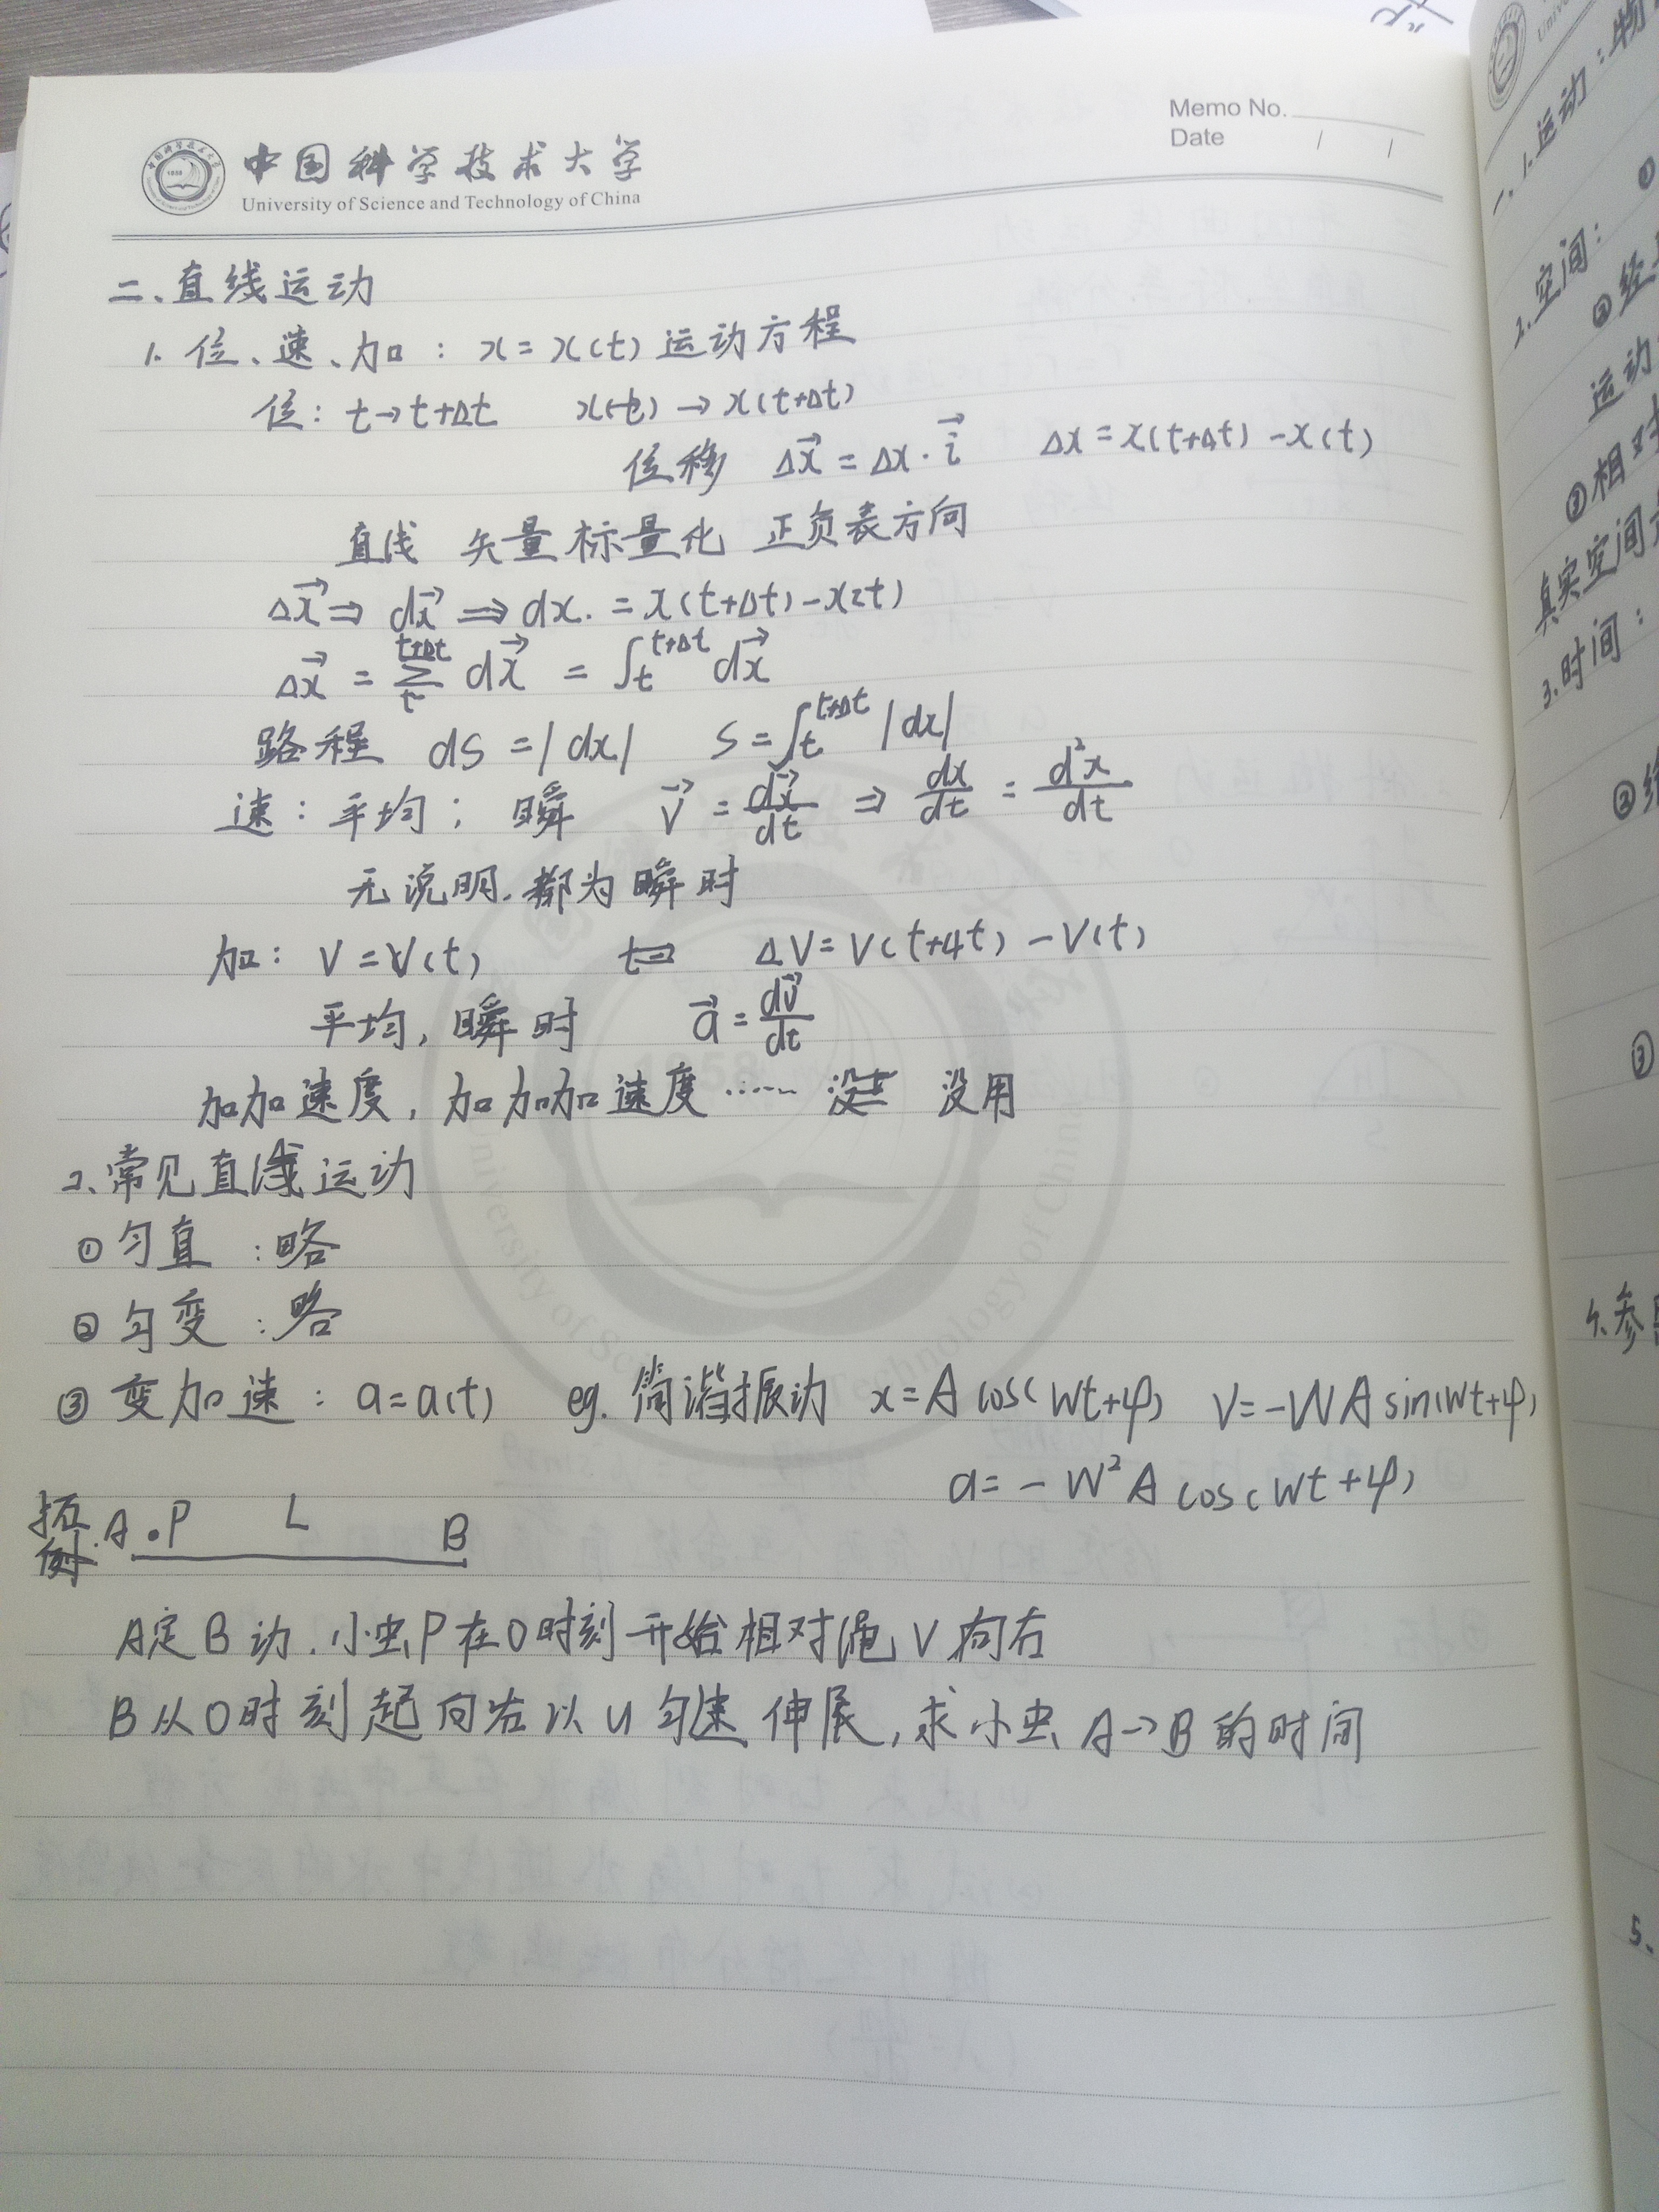 中国科学技术大学
University of Science and Technology of China
Memo No.
Date / /
二、直线运动
1. 位、速、加：x = x(t) 运动方程
位：t→t+Δt x(t) → x(t+Δt)
位移 Δx⃗ = Δx · i⃗ Δx = x(t+Δt) - x(t)
直线 矢量标量化 正负表方向
Δx⃗ ⇒ dx⃗ ⇒ dx. = x(t+Δt) - x(t)
Δx⃗ = Σ_t^{t+Δt} dx⃗ = ∫_t^{t+Δt} dx⃗
路程 ds = |dx| s = ∫_t^{t+Δt} |dx|
速：平均；瞬 v⃗ = dx⃗/dt ⇒ dx/dt = d²x/dt
无说明.都为瞬时
加：V = V(t) ΔV = V(t+Δt) - V(t)
平均，瞬时 a⃗ = dv⃗/dt
加加速度，加加加速度…… 没用
2、常见直线运动
① 匀直：略
② 匀变：略
③ 变加速：a = a(t) eg. 简谐振动 x = A cos(Wt+φ) V = -WA sin(Wt+φ)
a = - W² A cos(Wt+φ)
拓例. A P L B
A定B动.小虫P在0时刻开始相对绳V向右
B从0时刻起向右以u匀速伸展,求小虫A→B的时间
一、1.运动：物
①
2.空间：
②经
运动
③相对
真实空间
3.时间：
②
③
4.参
5、